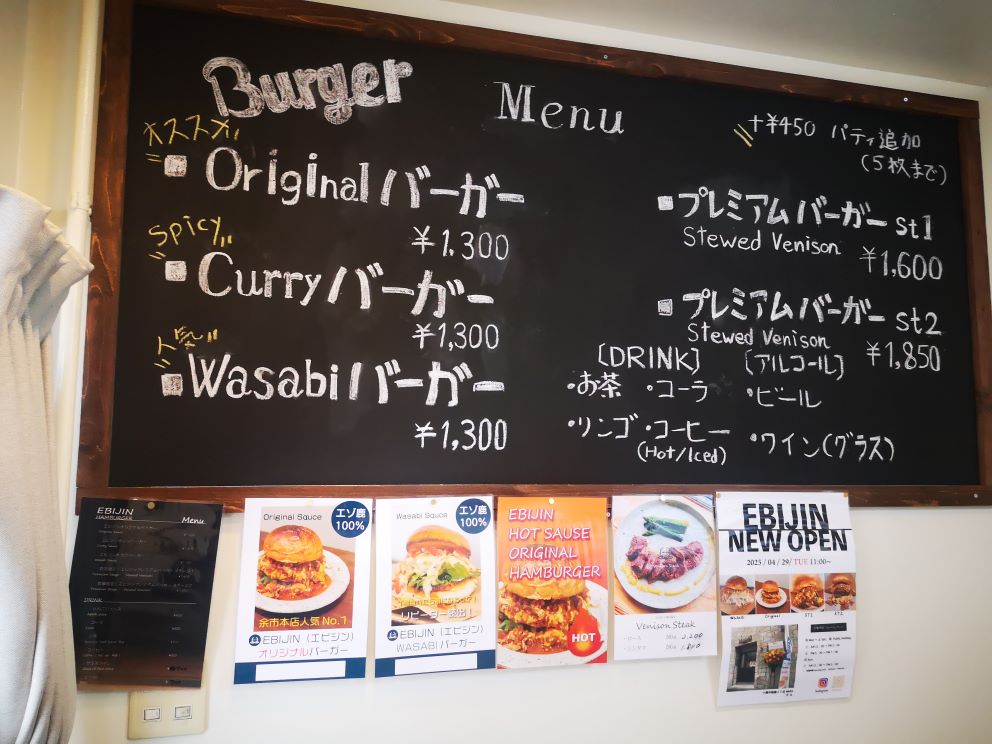 Burger Menu
オススメ
Original バーガー
¥1,300
Spicy
Curry バーガー
¥1,300
人気
Wasabi バーガー
¥1,300
+¥450 パティ追加
(5枚まで)
プレミアムバーガー st1
Stewed Venison
¥1,600
プレミアムバーガー st2
Stewed Venison
¥1,850
[DRINK]
・お茶 ・コーラ
・リンゴ ・コーヒー
(Hot/Iced)
[アルコール]
・ビール
・ワイン(グラス)
EBIJIN
HAMBURGER
Menu
DRINK
Original Sauce
エゾ鹿
100%
余市本店人気No.1
EBIJIN(エビジン)
オリジナルバーガー
Wasabi Sauce
エゾ鹿
100%
リピーター続出!
EBIJIN(エビジン)
WASABIバーガー
EBIJIN
HOT SAUSE
ORIGINAL
HAMBURGER
HOT
Venison Steak
2,200
EBIJIN
NEW OPEN
2025 / 04 / 29/ TUE 11:00~
Instagram